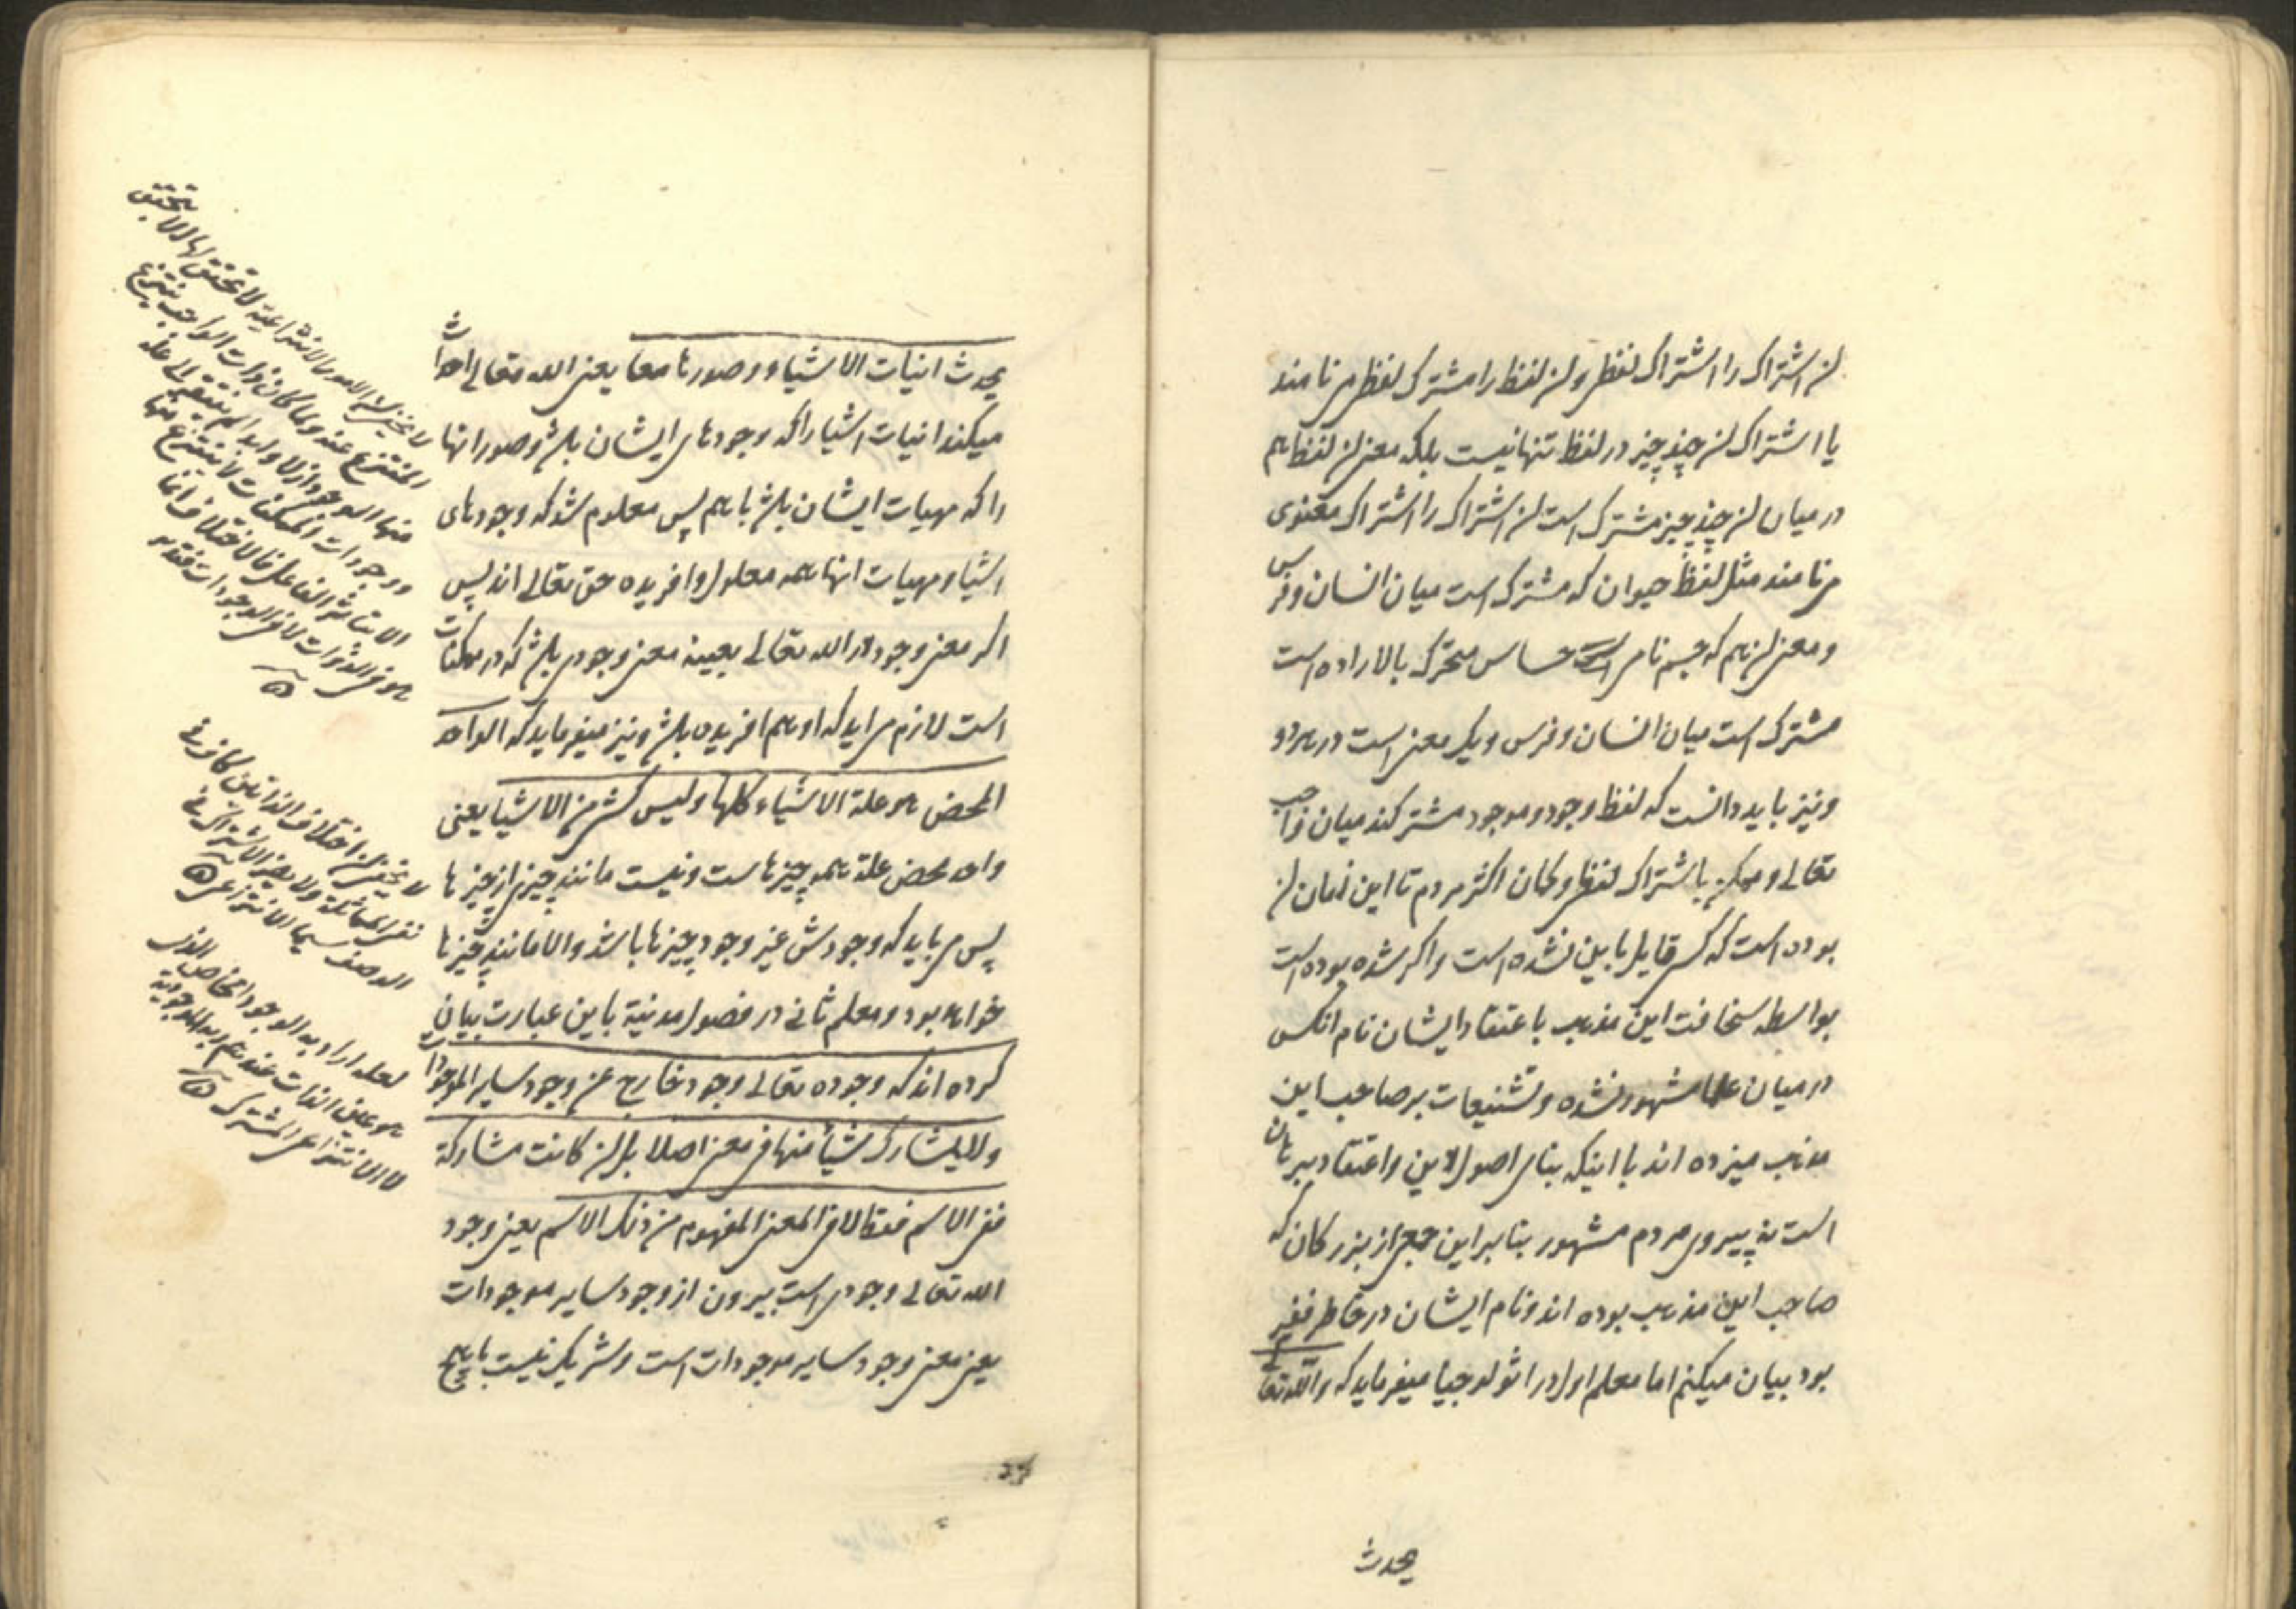 آن اشتراک را اشتراک لفظی و آن لفظ را مشترک لفظی می نامند
یا اشتراک آن چند چیز در لفظ تنها نیست بلکه معنی آن لفظ هم
در میان آن چند چیز مشترک است آن اشتراک را اشتراک معنوی
می نامند مثل لفظ حیوان که مشترک است میان انسان و فرس
و معنی آن هم که جسم نامی حساس متحرک بالاراده است
مشترک است میان انسان و فرس و یک معنی است در هر دو
و نیز باید دانست که لفظ وجود و موجود مشترکند میان واجب
تعالی و ممکن باشتراک لفظی و کمان اکثر مردم تا این زمان آن
بوده است که کسی قایل باین نشده است و اکر شده بوده است
بواسطه سخافت این مذهب باعتقاد ایشان نام انکس
در میان علما مشهور نشده و تشنیعات بر صاحب این
مذهب میزده اند با اینکه بنای اصول دین و اعتقاد ببرهان
است نه پیروی مردم مشهور بنابراین جمعی از بزرکان که
صاحب این مذهب بوده اند و نام ایشان در خاطر فقیر
بود بیان میکنم اما معلم اول در اثولوجیا میفرماید که والله تعالی
یحدث
یحدث انیات الاشیاء و صورها معا یعنی الله تعالی احداث
میکند انیات اشیا را که وجودهای ایشان باشد و صور انها
را که مهیات ایشان باشد باهم پس معلوم شد که وجودهای
اشیا و مهیات انها همه معلول و افریده حق تعالی اند پس
اکر معنی وجود در الله تعالی بعینه معنی وجودی باشد که در ممکنات
است لازم می اید که او هم افریده باشد و نیز میفرماید که الواحد
المحض هو علة الاشیاء کلها و لیس کشیء من الاشیا یعنی
واحد محض علة همه چیزهاست و نیست مانند چیزی از چیزها
پس می باید که وجودش غیر وجود چیزها باشد و الا مانند چیزها
خواهد بود و معلم ثانی در فصول مدنیة باین عبارت بیان
کرده اند که وجوده تعالی وجود خارج عن وجود سایر الموجودات
و لا یشارک شیأ منها فی معنی اصلا بل ان کانت مشارکة
ففی الاسم فقط لا فی المعنی المفهوم من ذلک الاسم یعنی وجود
الله تعالی وجودی است بیرون از وجود سایر موجودات
یعنی معنی وجود سایر موجودات است و شریک نیست با هیچ
لا یخفی ان الامور الانتزاعیة لا تحقق لها الا بتحقق
المنتزع عنه و لما کان ذات الواجب ینتزع
منها الوجود ازلا و ابدا لم یفتقر الی علة
و وجودات الممکنات لا ینتزع منها
الا بتاثیر الفاعل فالاختلاف انما
هو فی الذوات لا فی الوجودات فتدبر
لا یخفی ان اختلاف الذاتین کاف فی
نفی المماثلة و لا یضر الاشتراک فی
الوصف سیما الانتزاعی
لعله اراد به الوجود الخاص الذی
هو عین الذات عندهم و به الموجودیة
لا الانتزاعی المشترک